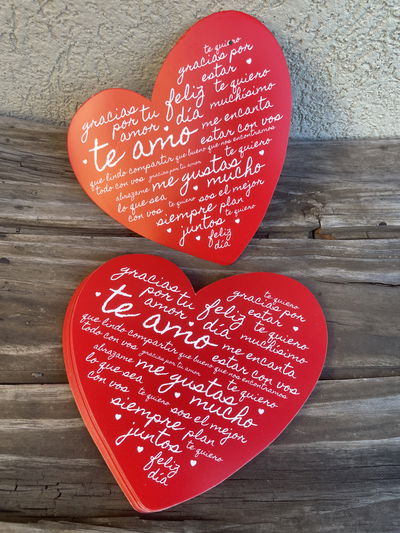 te quiero
gracias por
gracias estar
por tu feliz te quiero
amor día muchísimo
te amo me encanta
estar con vos
que lindo compartir que bueno que nos encontramos
todo con vos gracias por tu amor te quiero
abrazame me gustas
lo que sea mucho
con vos te quiero sos el mejor
siempre plan
juntos te quiero
feliz
día
te quiero
gracias gracias por
por tu estar
feliz te quiero
amor día muchísimo
te amo me encanta
estar con vos
que lindo compartir que bueno que nos encontramos
todo con vos gracias por tu amor
abrazame me gustas te quiero
lo que sea mucho
con vos te quiero sos el mejor
siempre plan
juntos te quiero
feliz
día